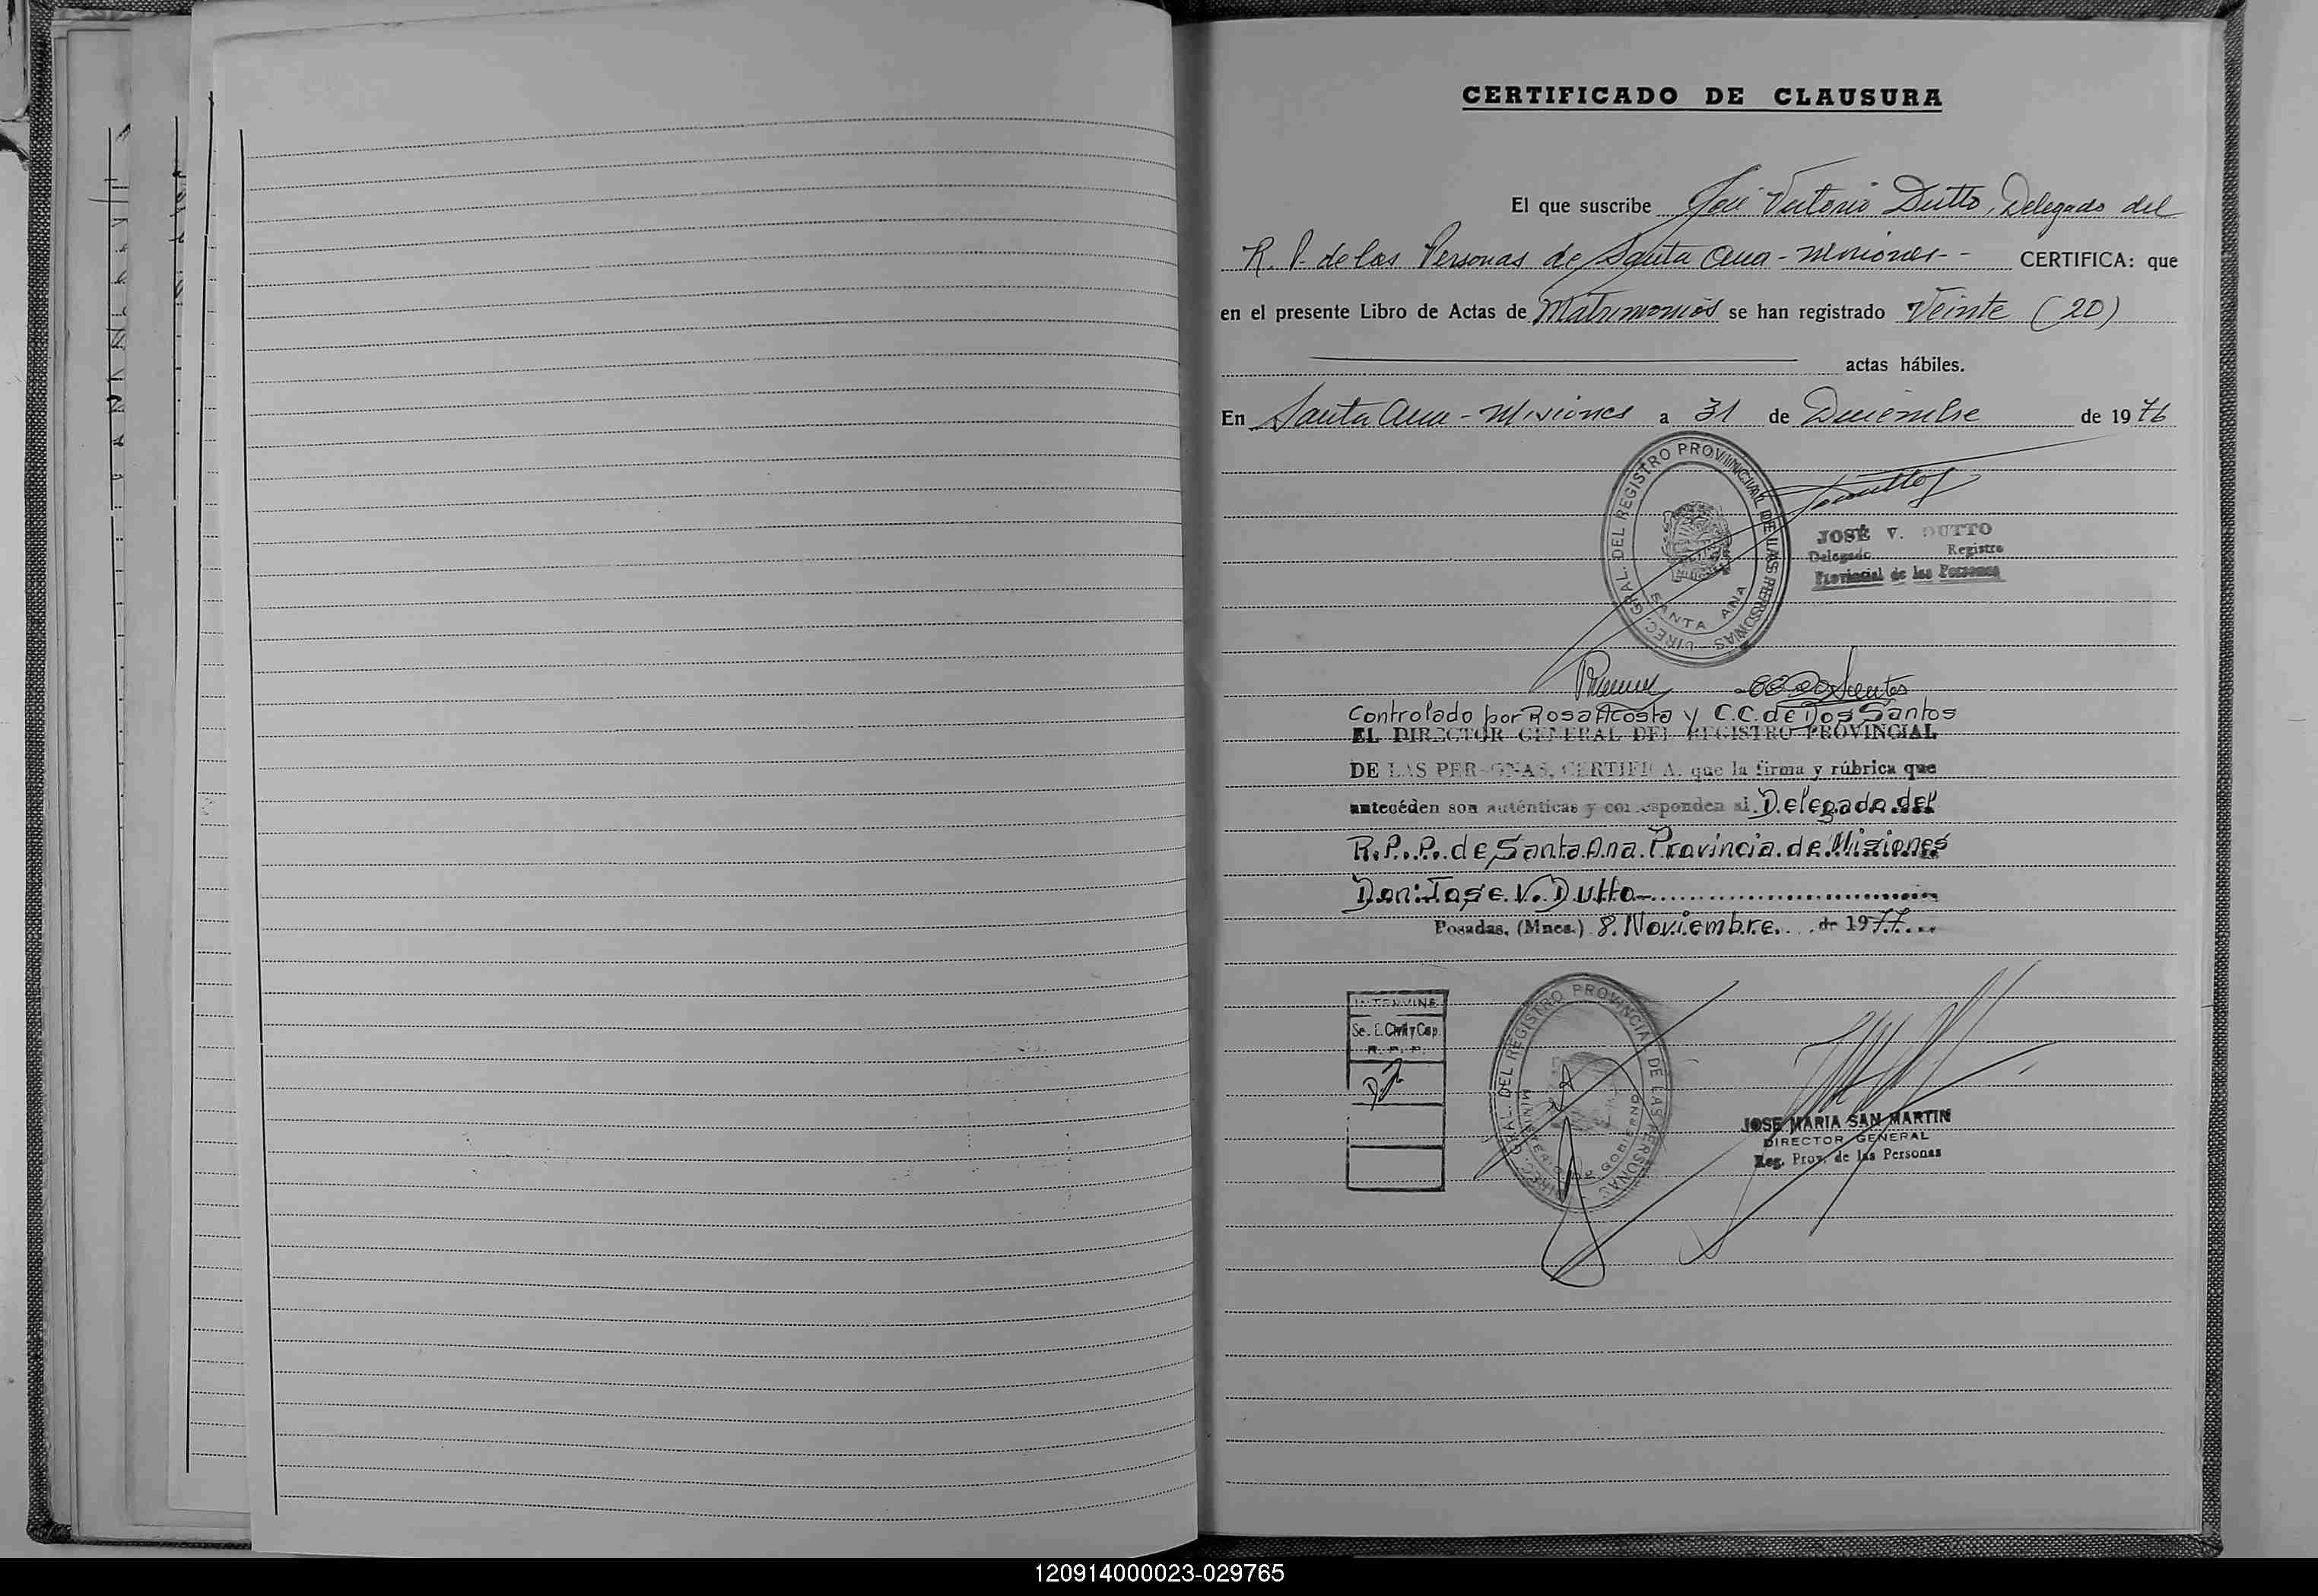 CERTIFICADO DE CLAUSURA
El que suscribe José Victorio Dutto, Delegado del
R. P. de las Personas de Santa Ana - Misiones - - CERTIFICA: que
en el presente Libro de Actas de Matrimonios se han registrado Veinte (20)
actas hábiles.
En Santa Ana - Misiones a 31 de Diciembre de 1976
DIREC. GRAL. DEL REGISTRO PROVINCIAL DE LAS PERSONAS
MISIONES
SANTA ANA
JOSÉ V. DUTTO
Delegado Registro
Provincial de las Personas
Controlado por Rosa Acosta y C.C. de Dos Santos
EL DIRECTOR GENERAL DEL REGISTRO PROVINCIAL
DE LAS PERSONAS, CERTIFICA: que la firma y rúbrica que
antecéden son auténticas y corresponden al Delegado del
R.P.P. de Santa Ana Provincia de Misiones
Don: Jose V. Dutto
Posadas, (Mnes.) 8 Noviembre de 1977
INTERVINE
Se. E. Civil y Cap.
R. P. P.
DIREC. GRAL. DEL REGISTRO PROVINCIAL DE LAS PERSONAS
MINISTERIO DE GOBIERNO
JOSE MARIA SAN MARTIN
DIRECTOR GENERAL
Reg. Prov. de las Personas
120914000023-029765